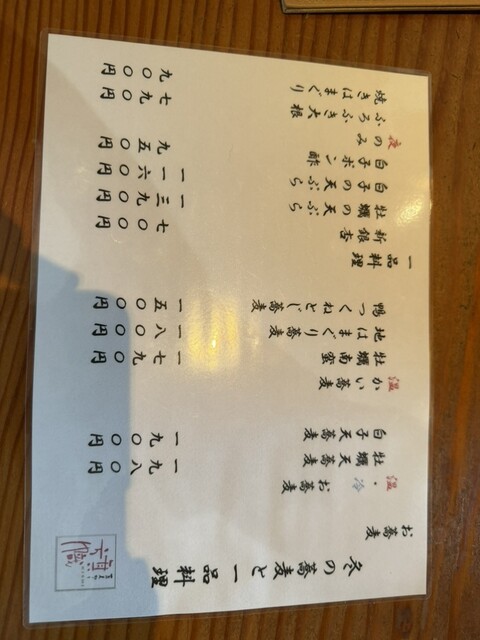 冬の蕎麦と一品料理
お蕎麦
温・冷お蕎麦
牡蠣天蕎麦 一九八〇円
白子天蕎麦 一九〇〇円
温かい蕎麦
牡蠣南蛮 一七九〇円
地はまぐり蕎麦 一八〇〇円
鴨つくねとじ蕎麦 一五〇〇円
一品料理
新銀杏 七〇〇円
牡蠣の天ぷら 一三九〇円
白子の天ぷら 一一六〇円
白子ポン酢 九五〇円
夜のみ
ふろふき大根 七九〇円
焼きはまぐり 九〇〇円